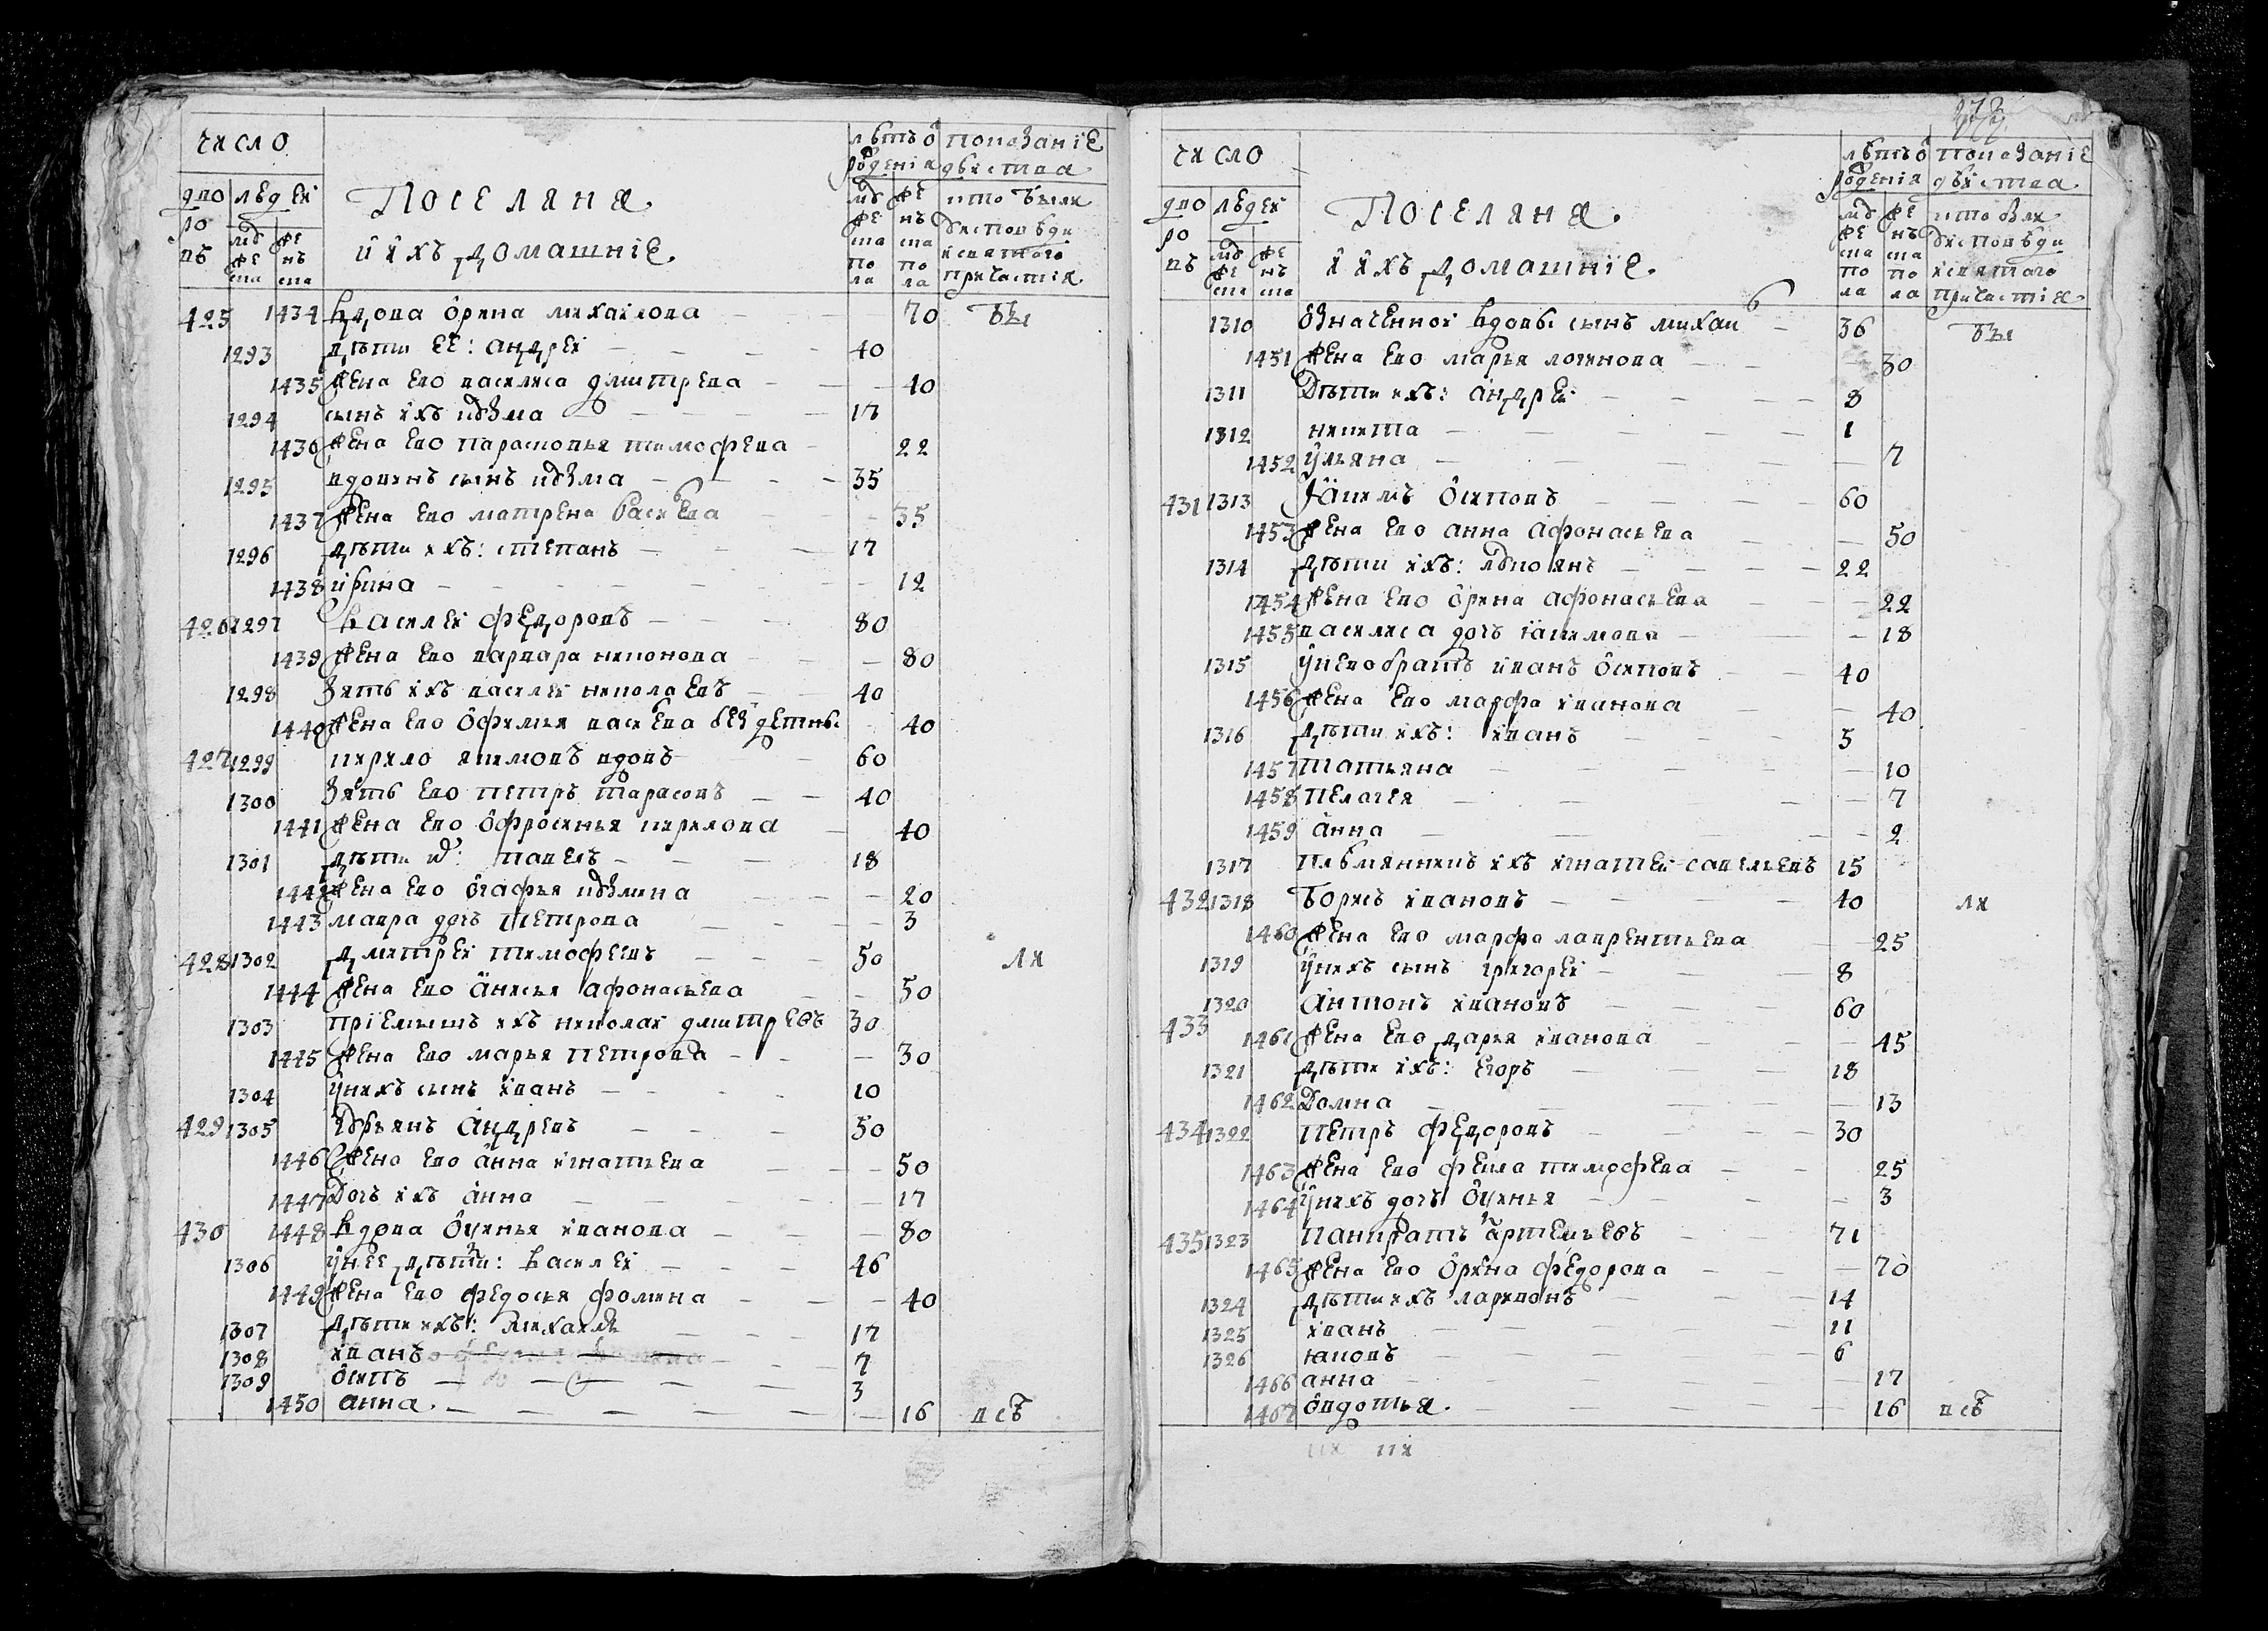 число
дворовъ людей
мужеска женска
Поселяне
и ихъ домашнїе.
лѣтъ ѿ рожденїя
мужеска пола женска пола
показанїе дѣйства
кто были у исповѣди и святаго причастїя
425 1434 Вдова Орина михаилова 70 бы
1293 дѣти ее: андреи 40
1435 жена ево василиса дмитрева 40
1294 сынъ ихъ кузма 17
1436 жена ево парасковья тимофева 22
1295 вдовинъ сынъ кузма 35
1437 жена ево матрена васиева 35
1296 дѣти ихъ: степанъ 17
1438 ирина 12
426 1297 Василеи федоровъ 80
1439 жена ево варвара никонова 80
1298 Зять ихъ василеи николаевъ 40
1440 жена ево офимья васиева без детны 40
427 1299 кирило якимовъ вдовъ 60
1300 Зять ево петръ тарасовъ 40
1441 жена ево офросинья кирилова 40
1301 дѣти их: павелъ 18
1442 жена ево огафья кузмина 20
1443 мавра дочь петрова 3
428 1302 дмитреи тимофеевъ 50 ли
1444 жена ево анисья афонасьева 50
1303 прїемышъ ихъ николаи дмитревъ 30
1445 жена ево марья петрова 30
1304 у нихъ сынъ иванъ 10
429 1305 Гурьянъ андревъ 50
1446 жена ево анна игнатьева 50
1447 Дочь ихъ анна 17
430 1448 Вдова оксинья иванова 80
1306 у нее дѣти: Василеи 46
1449 жена ево федосья фомина 40
1307 дѣти ихъ: михаилъ 17
1308 иванъ 7
1309 осипъ 3
1450 анна. 16 всѣ
число
дворовъ людей
мужеска женска
Поселяне
и ихъ домашнїе.
лѣтъ ѿ рожденїя
мужеска пола женска пола
показанїе дѣйства
кто были у исповѣди и святаго причастїя
1310 Означенной вдовы сынъ михаи 36 бы
1451 жена ево марья логинова 30
1311 Дѣти ихъ: андреи 8
1312 никита 1
1452 ульяна 7
431 1313 Їакимъ осиповъ 60
1453 жена ево анна афонасьева 50
1314 дѣти ихъ: лукоянъ 22
1454 жена ево орина афонасьева 22
1455 василиса дочь їакимова 18
1315 у нево братъ иванъ осиповъ 40
1456 жена ево марфа иванова 40
1316 дѣти ихъ: иванъ 5
1457 татьяна 10
1458 пелагея 7
1459 анна 2
1317 племянникъ ихъ игнатеи савельевъ 15
432 1318 Борисъ ивановъ 40 ли
1460 жена ево марфа лаврентьева 25
1319 у нихъ сынъ григореи 8
433 1320 антонъ ивановъ 60
1461 жена ево дарья иванова 45
1321 дѣти ихъ: егоръ 18
1462 Домна 13
434 1322 петръ федоровъ 30
1463 жена ево фекла тимофева 25
1464 у нихъ дочь оксинья 3
435 1323 панкратъ артемьевъ 71
1465 жена ево орина федорова 70
1324 дѣти ихъ ларивонъ 14
1325 иванъ 11
1326 їаковъ 6
1466 анна 17
1467 овдотья. 16 всѣ